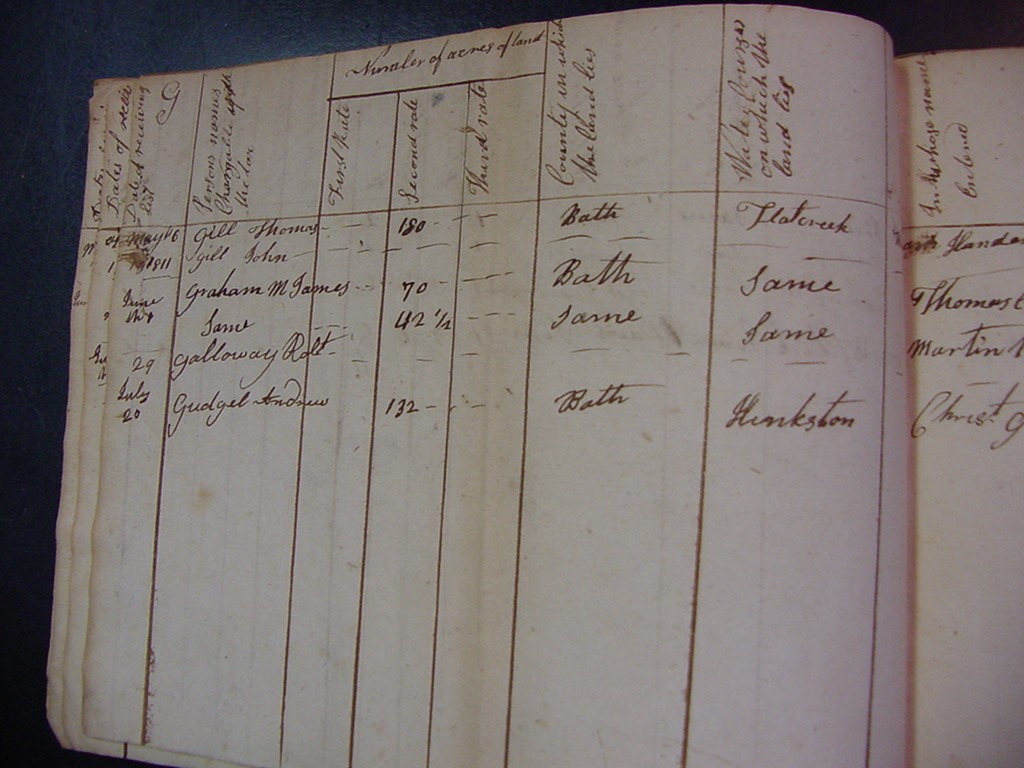 Dates of receiving list
G
Persons names Chargable with the tax
Number of acres of land
First Rate
Second rate
Third rate
County in which the land lies
Water Courses on which the land lies
In whose name Entered
May 16 Gill Thomas 150 Bath Flatcreek
1811 Gill John
June Graham M James 70 Bath Same Thomas
Same 42 1/2 Same Same Martin
29 Galloway Robt
July 20 Gudgel Andrew 132 Bath Hinkston Christ G